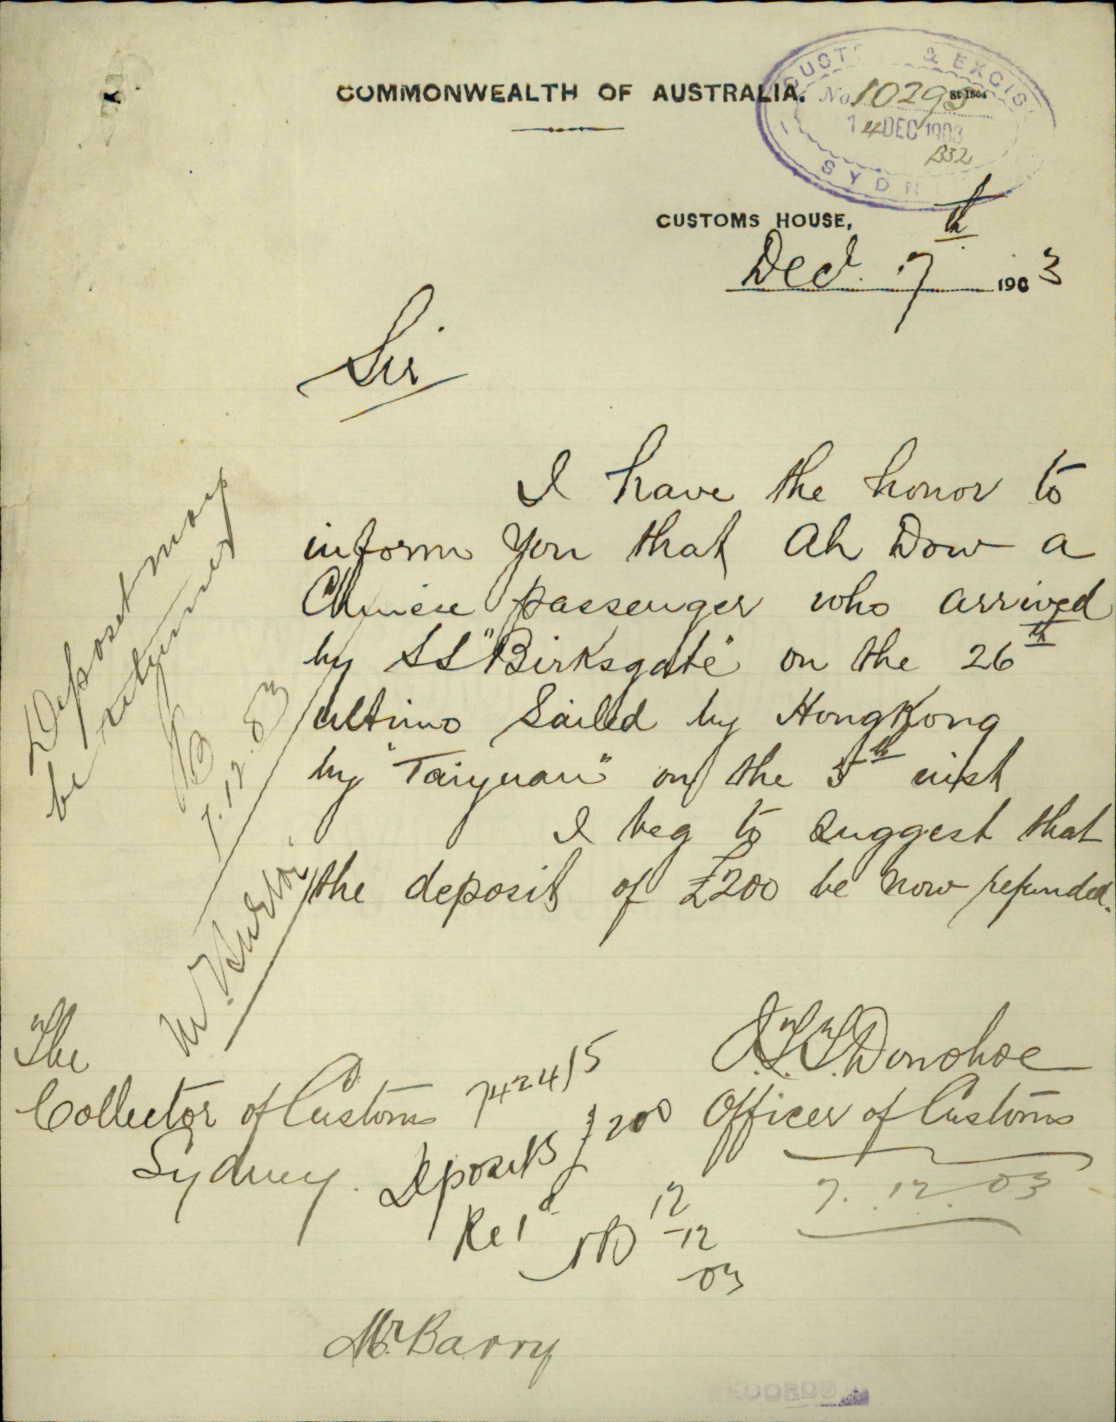 COMMONWEALTH OF AUSTRALIA.
DUCT & EXCIS
No 10293
14 DEC 1903
B32
SYDN
CUSTOMS HOUSE,
Decr. 7th 1903
Sir
I have the honor to
inform you that Ah Dow a
Chinese passenger who arrived
by SS "Birksgate" on the 26th
ultimo Sailed by HongKong
by "Taiyuan" on the 5th inst
I beg to suggest that
the deposit of £200 be now refunded.
Deposit may
be returned
7.12.03
The
Collector of Customs
Sydney.
J.T.T. Donohoe
Officer of Customs
7.12.03
742415
Deposits £200
Ret'd
12
-12
-03
Mr. Barry
RECORDS